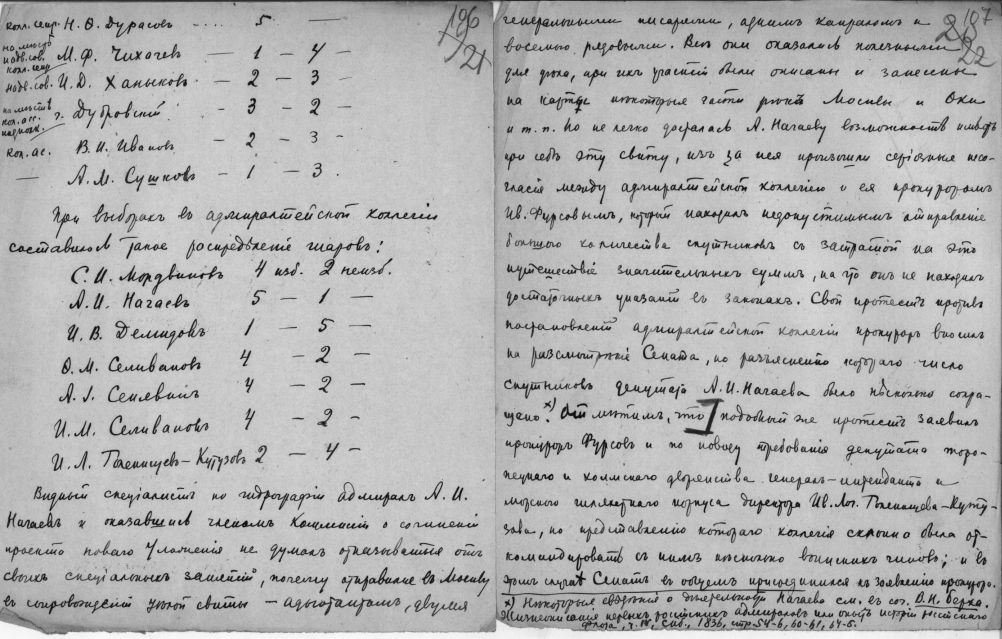 196
21
колл. секр. Н. Ѳ. Дурасовъ .... 5 —
на мѣсто
надв. сов. М. Ф. Чихачевъ — 1 — 4 —
колл. секр.
надв. сов. И. Д. Ханыковъ — 2 — 3 —
на мѣсто
кол. асс. г. Дубровскій — 3 — 2 —
кол. ас. В. И. Ивановъ — 2 — 3 —
— А. М. Сушковъ — 1 — 3 .
При выборахъ въ адмиралтейской коллегіи
составилось такое распредѣленіе шаровъ:
С. И. Мордвиновъ 4 изб. 2 неизб.
А. И. Нагаевъ 5 — 1 —
И. В. Демидовъ 1 — 5 —
Ѳ. М. Селивановъ 4 — 2 —
А. І. Сенявинъ 4 — 2 —
И. М. Селивановъ 4 — 2 —
И. Л. Голенищевъ-Кутузовъ 2 — 4 —
Видный спеціалистъ по гидрографіи адмиралъ А. И.
Нагаевъ и оказавшись членомъ Коммиссіи о сочиненіи
проекта новаго Уложенія не думалъ отказываться отъ
своихъ спеціальныхъ занятій, почему отправился въ Москву
въ сопровожденіи цѣлой свиты — адъютантомъ, двумя
107
26
22
генеральными писарями, однимъ капраломъ и
восемью рядовыми. Всѣ они оказались полезными
для дѣла, при ихъ участіи были описаны и занесены
на карты нѣкоторыя части рѣкъ Москвы и Оки
и т. п. Но не легко досталась А. Нагаеву возможность имѣть
при себѣ эту свиту, изъ за нея произошли серіозныя несо-
гласія между адмиралтейской коллегіею и ея прокуроромъ
Ив. Фурсовымъ, который находилъ недопустимымъ отправленіе
большого количества спутниковъ съ затратой на это
путешествіе значительныхъ суммъ, на что онъ не находилъ
достаточныхъ указаній въ законахъ. Свой протестъ противъ
постановленій адмиралтейской коллегіи прокуроръ вносилъ
на разсмотрѣніе Сената, по разъясненію котораго число
спутниковъ депутата А. И. Нагаева было нѣсколько сокра-
щено. х) Отмѣтимъ, что] подобный же протестъ заявилъ
прокуроръ Фурсовъ и по поводу требованія депутата торо-
пецкаго и холмскаго дворянства генералъ-интенданта и
морского шляхетнаго корпуса директора Ив. Лог. Голенищева-Куту-
зова, по представленію котораго коллегія склонна была от-
командировать съ нимъ нѣсколько воинскихъ чиновъ; и въ
этомъ случаѣ Сенатъ въ общемъ присоединился къ заявленію прокурора.
х) Нѣкоторыя свѣдѣнія о дѣятельности Нагаева см. въ соч. В. Н. Берха.
Жизнеописанія первыхъ россійскихъ адмираловъ или опытъ исторіи россійскаго
флота, Спб., 1836, стр. 54-6, 60-61, 64-5.